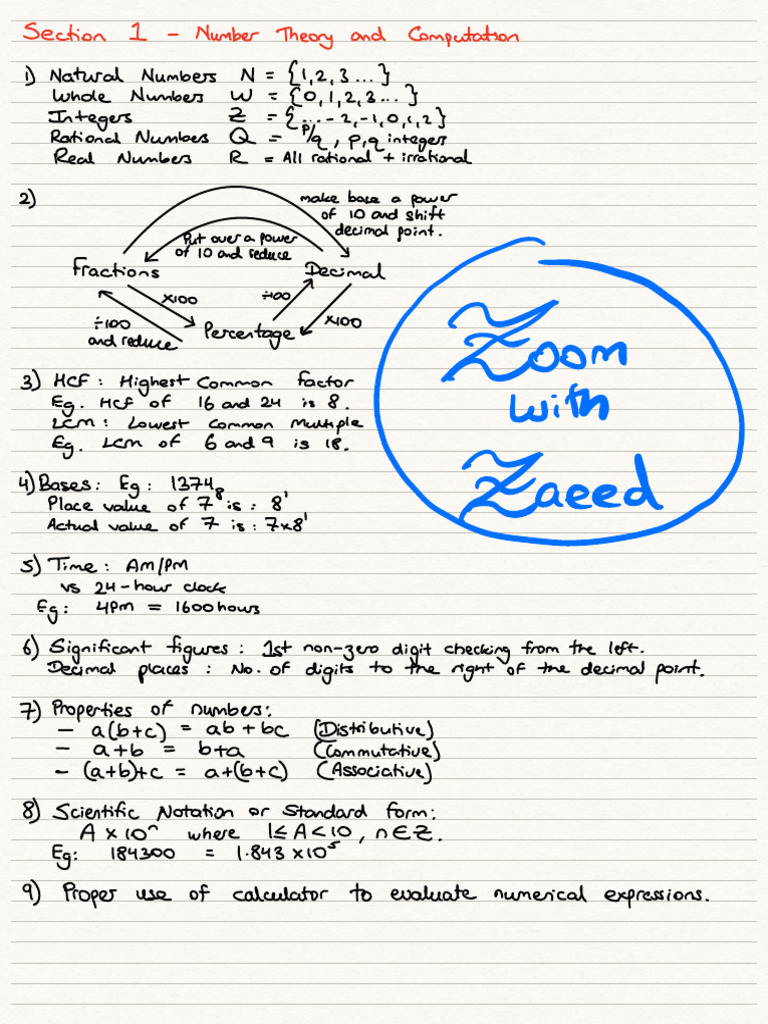 Section 1 - Number Theory and Computation
1) Natural Numbers N = {1,2,3...}
Whole Numbers W = {0,1,2,3...}
Integers Z = {...-2,-1,0,1,2}
Rational Numbers Q = p/q, p,q integers
Real Numbers R = All rational + irrational
2)
make base a power
of 10 and shift
decimal point.
Put over a power
of 10 and reduce
Fractions
Decimal
x100
÷100
÷100
and reduce
Percentage
x100
Zoom
with
Zaeed
3) HCF: Highest Common Factor
Eg. HCF of 16 and 24 is 8.
LCM: Lowest Common Multiple
Eg. LCM of 6 and 9 is 18.
4) Bases: Eg: 1374₈
Place value of 7 is: 8¹
Actual value of 7 is: 7x8¹
5) Time: AM/PM
vs 24-hour clock
Eg: 4PM = 1600 hours
6) Significant figures: 1st non-zero digit checking from the left.
Decimal places: No. of digits to the right of the decimal point.
7) Properties of numbers:
- a(b+c) = ab + bc (Distributive)
- a+b = b+a (Commutative)
- (a+b)+c = a+(b+c) (Associative)
8) Scientific Notation or Standard form:
A x 10ⁿ where 1≤A<10, n∈Z.
Eg: 184300 = 1.843 x10⁵
9) Proper use of calculator to evaluate numerical expressions.